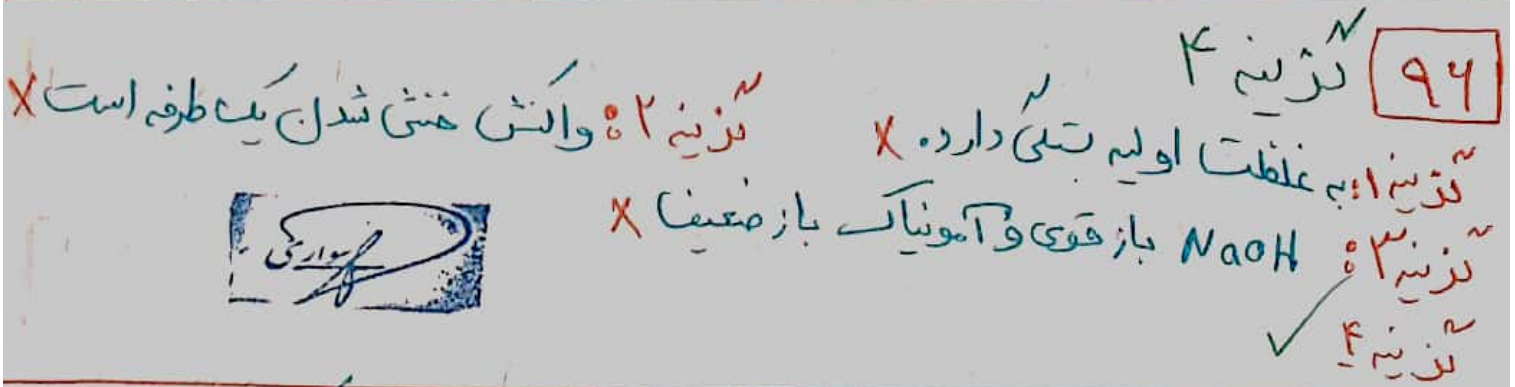 ۹۶ گزینه ۴
گزینه ۱: به غلظت اولیه بستگی دارد. X
گزینه ۲: واکنش خنثی شدن یک طرفه است X
گزینه ۳: NaOH باز قوی و آمونیاک باز ضعیف X
گزینه ۴ ✓